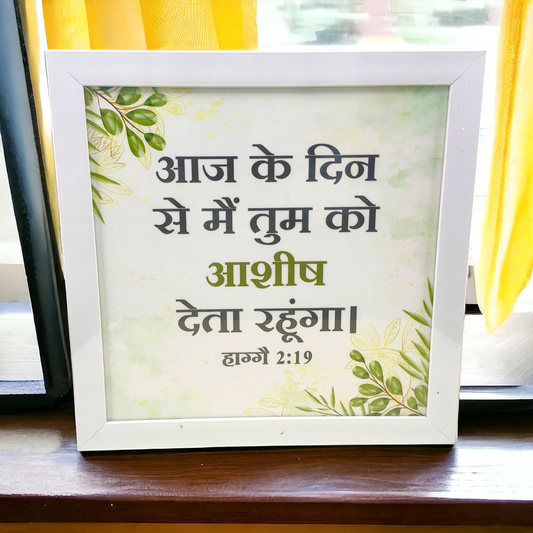 आज के दिन
से मैं तुम को
आशीष
देता रहूंगा।
हाग्गै 2:19